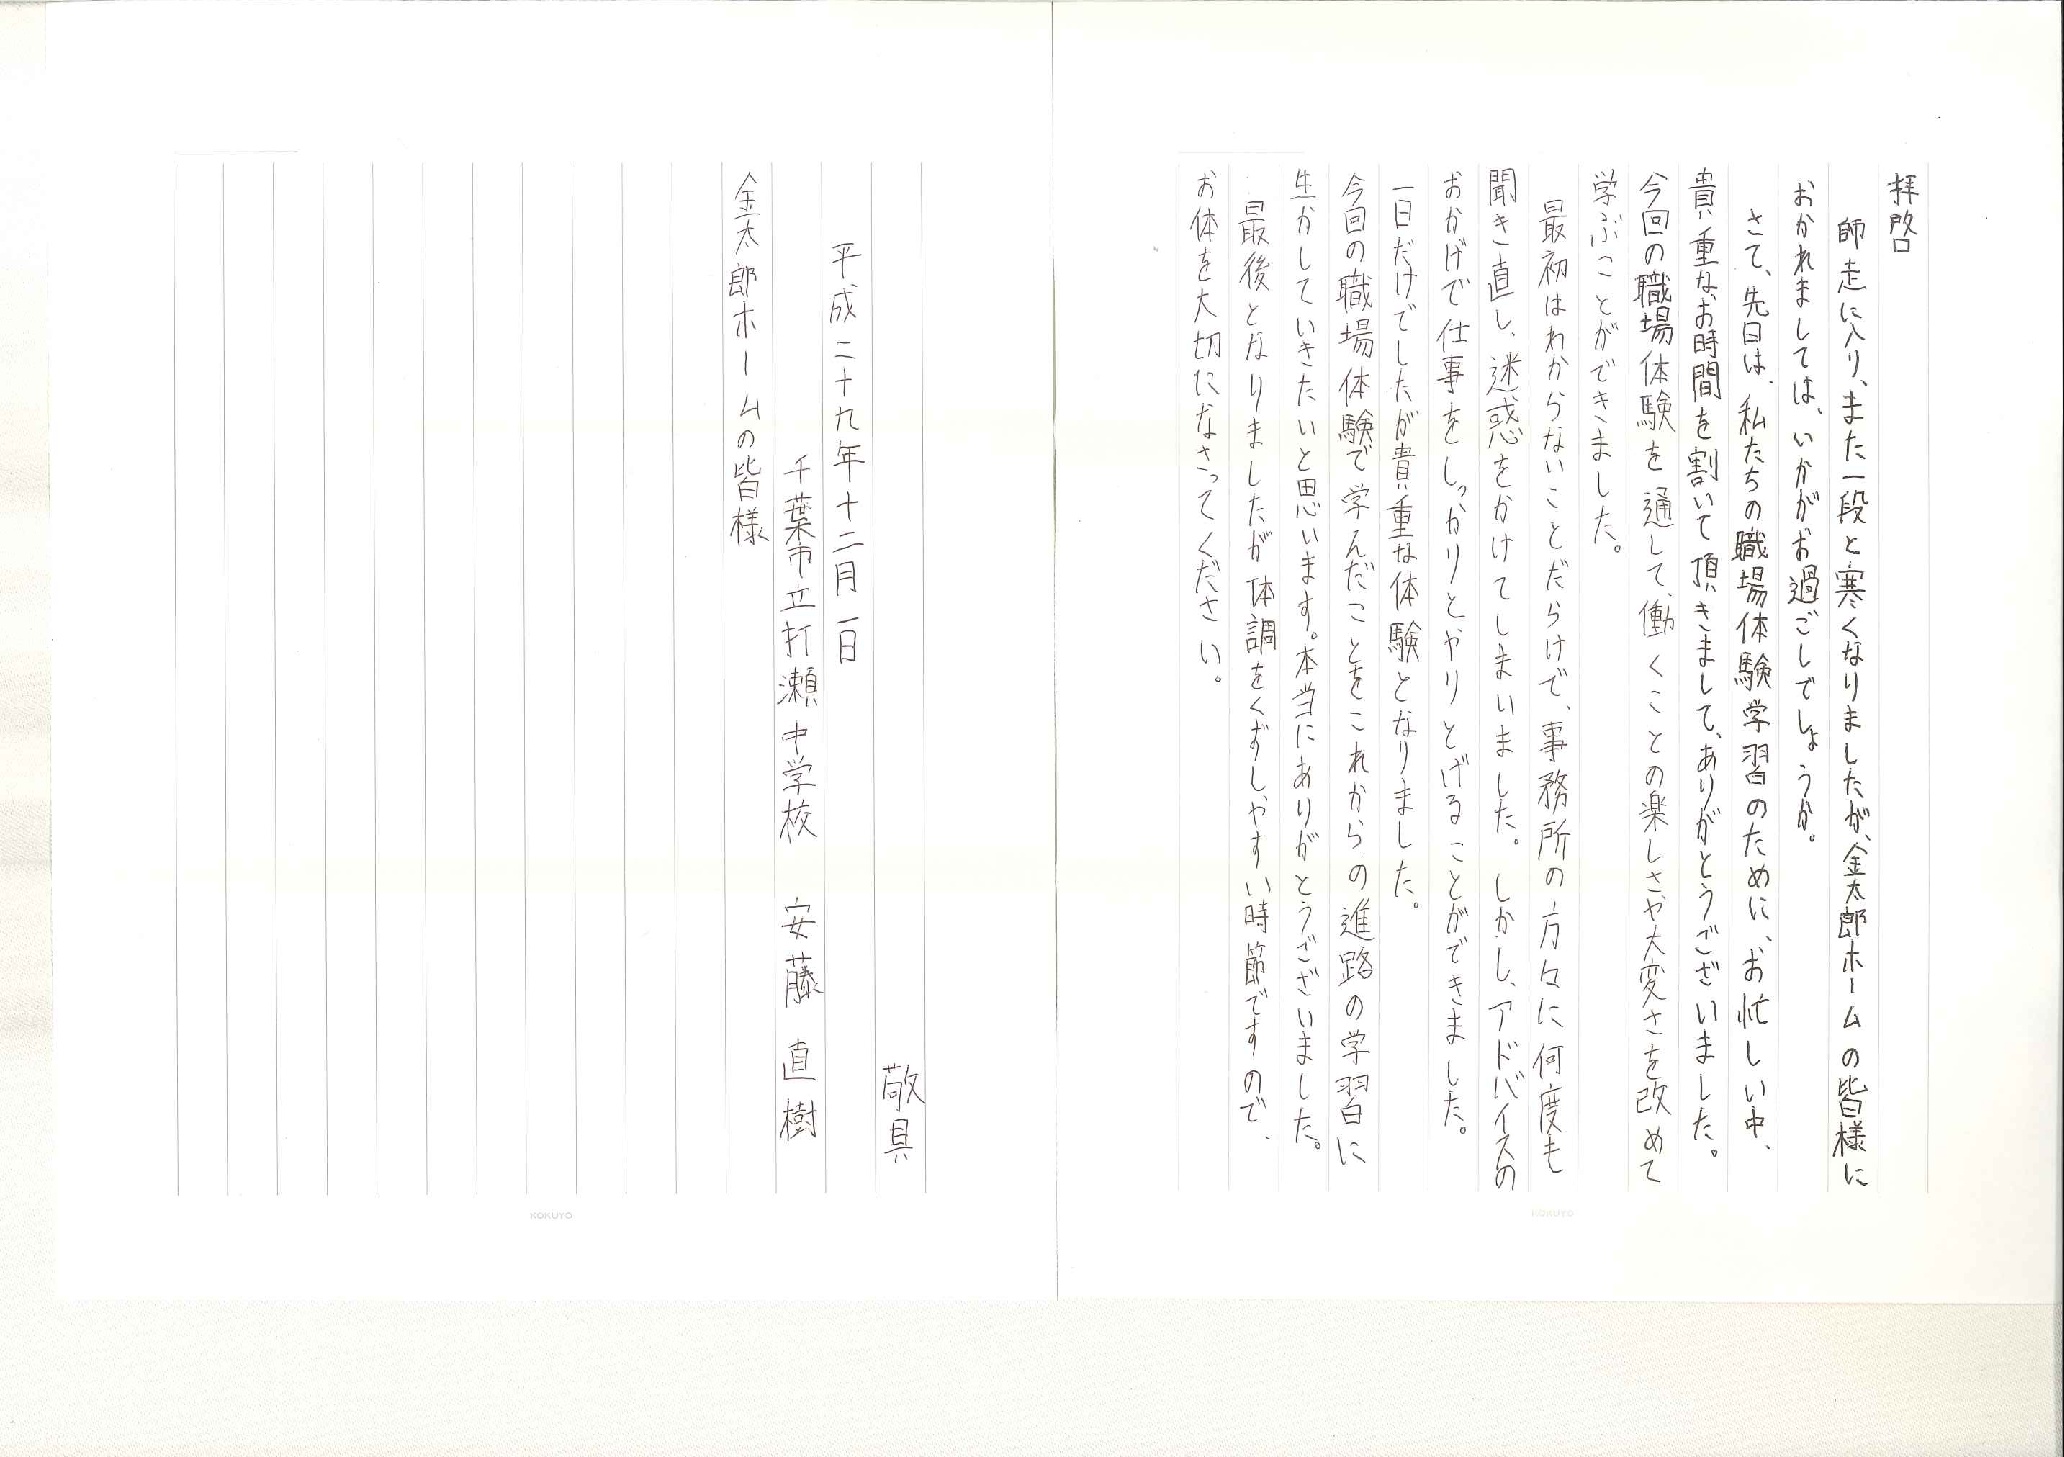 拝啓
師走に入り、また一段と寒くなりましたが、金太郎ホームの皆様に
おかれましては、いかがお過ごしでしょうか。
さて、先日は、私たちの職場体験学習のために、お忙しい中、
貴重なお時間を割いて頂きまして、ありがとうございました。
今回の職場体験を通して、働くことの楽しさや大変さを改めて
学ぶことができました。
最初はわからないことだらけで、事務所の方々に何度も
聞き直し、迷惑をかけてしまいました。しかし、アドバイスの
おかげで仕事をしっかりとやりとげることができました。
一日だけでしたが貴重な体験となりました。
今回の職場体験で学んだことをこれからの進路の学習に
生かしていきたいと思います。本当にありがとうございました。
最後となりましたが体調をくずしやすい時節ですので、
お体を大切になさってください。
敬具
平成二十九年十二月一日
千葉市立打瀬中学校 安藤直樹
金太郎ホームの皆様
KOKUYO
KOKUYO